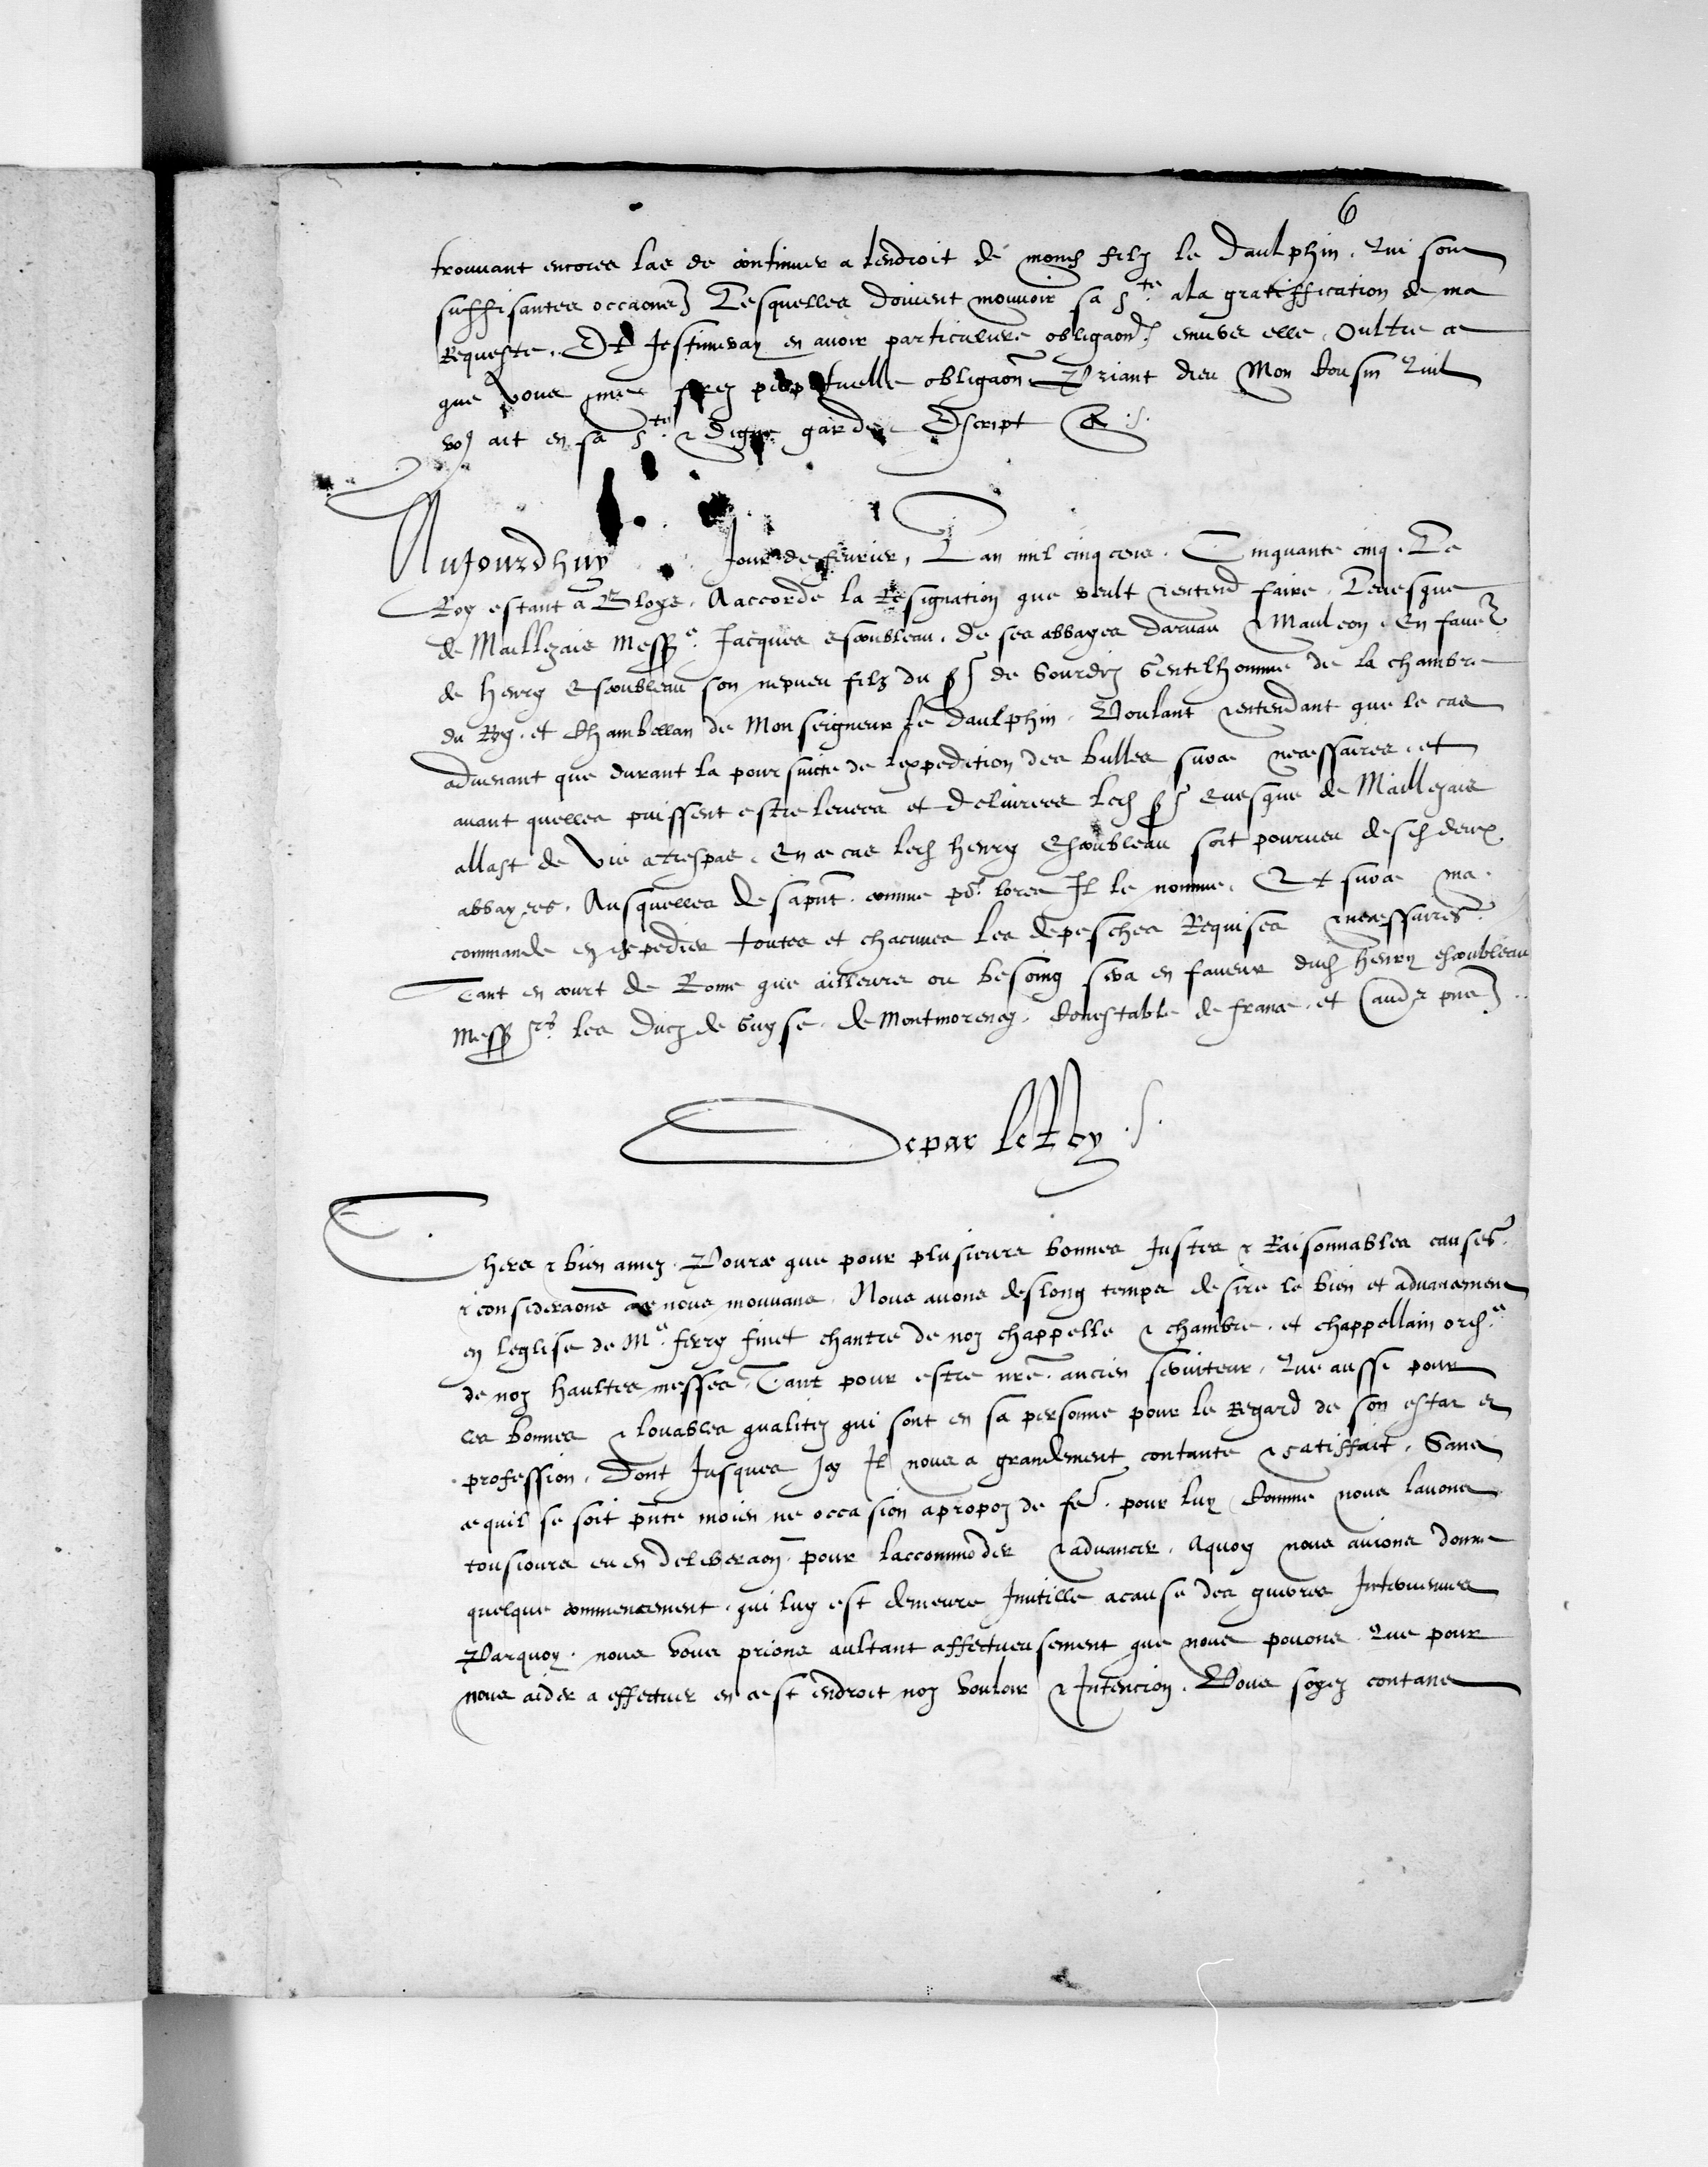 6
trouvant encores las de continuer a lendroit de mond filz le daulphin. Qui sont
suffisantes occaons Lesquelles doivent mouvoir sa Ste ala gratiffication de ma
Requeste. Et Jestimeray en avoir particuliere obligaon envers elle, Oultre ce
que vous mes ferez perpetuelle obligaon Priant dieu Mon Cousin Quil
vos ait en sa Ste & digne garde Escript &c.
Aujourdhuy Jour de fevrier, Lan mil cinq cens. Cinquante cinq. Le
Roy estant a Bloys. A accorde la Resignation que veult & entend faire, Levesque
de Maillezais Messe Jacques escoubleau. de ses abbayes darvau & Mauleon. En faver
de Henry Escoubleau son nepveu filz du sr de Sourdiz Gentelhomme de la chambre
du Roy. et Chambellan de Monseigneur le daulphin. Voulant & entendant que le cas
advenant que durant la poursuicte de lexpedition des bulles sur ce necessaires. et
avant quelles puissent estre levees et delivrees led sr Evesque de Maillezais
allast de vie a trespas. En ce cas led Henry Escoubleau soit pourveu desd deux
abbayes. Ausquelles des apnt. comme por lors Il le nomme. Et sur ce ma
commande en expedier toutes et chacunes les depesches Requises & necessaires
Tant en court de Rome que ailleurs ou besoing sera en faveur dud Henry escoubleau
Messrs les ducz de Guyse. de Montmorency. Conestable de france. et aues pns
De par le Roy
Chers & bien amez. Pource que pour plusieurs bonnes Justes & Raisonnables causes
& consideraons ace nous mouvans. Nous avons deslong temps desire le bien et advancement
en leglise de Me. ferry finet chantre de noz chappelle & chambre. et chappellain ordre
de noz haultes messes Tant pour estre nre ancien serviteur, Que aussi pour
les bonnes & louables qualitez qui sont en sa personne pour le Regard de son estat et
profession. Dont Jusques Icy Il nous a grandement contante & satisfait. Sans
ce quil se soit pnte moien ne occasion apropoz de fe. pour luy Comme nous lavons
tousiours eu en deliberaon pour laccommoder & advancer. Aquoy nous avions donne
quelque commencement. qui luy est demeure Inutille acause des guerres Intervenues
Parquoy. nous vous prions aultant affectueusement que nous povons. Que pour
nous aider a effectuer en cest endroit noz vouloir & Intencion. Vous soyez contans